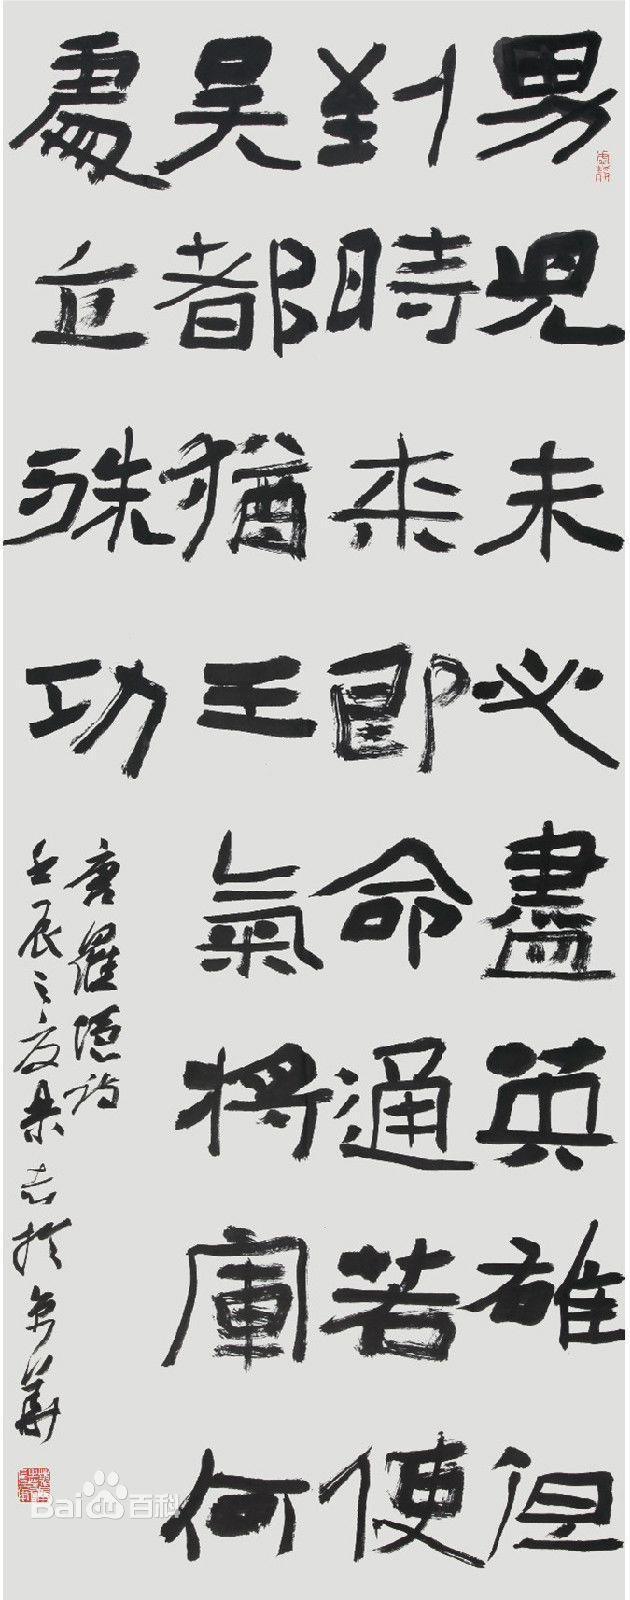 男兒未必盡英雄但
到時來即命通若使
吳都猶王氣將軍何
處立殊功
唐羅隱詩
壬辰之夏志於京華
Bai百科